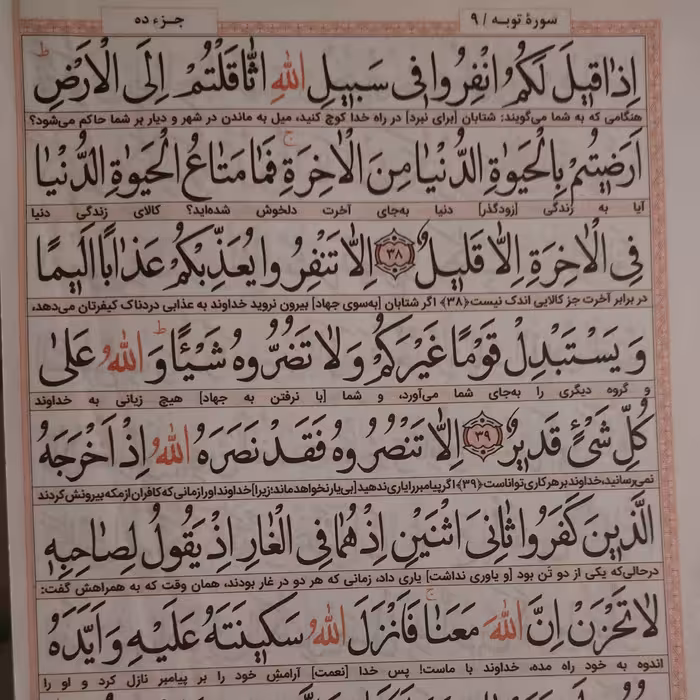 سورهٔ توبه / ۹
جزء ده
اِذا قيلَ لَكُمُ انْفِرُوا فى سَبيلِ اللّٰهِ اثّاقَلْتُمْ اِلَى الْاَرْضِ ط
هنگامی که به شما می‌گویند: شتابان [برای نبرد] در راه خدا کوچ کنید، میل به ماندن در شهر و دیار بر شما حاکم می‌شود؟
اَرَضيتُمْ بِالْحَيٰوةِ الدُّنْيا مِنَ الْاٰخِرَةِ ج فَما مَتاعُ الْحَيٰوةِ الدُّنْيا
آیا به زندگی [زودگذر] دنیا به‌جای آخرت دلخوش شده‌اید؟ کالای زندگی دنیا
فِى الْاٰخِرَةِ اِلّا قَليلٌ ﴿۳۸﴾ اِلّا تَنْفِرُوا يُعَذِّبْكُمْ عَذابًا اَليمًا
در برابر آخرت جز کالایی اندک نیست ﴿۳۸﴾ اگر شتابان [به‌سوی جهاد] بیرون نروید خداوند به عذابی دردناک کیفرتان می‌دهد،
وَ يَسْتَبْدِلْ قَوْمًا غَيْرَكُمْ وَ لا تَضُرُّوهُ شَيْئًا ط وَ اللّٰهُ عَلىٰ
و گروه دیگری را به‌جای شما می‌آورد، و شما [با نرفتن به جهاد] هیچ زیانی به خداوند
كُلِّ شَىْءٍ قَديرٌ ﴿۳۹﴾ اِلّا تَنْصُرُوهُ فَقَدْ نَصَرَهُ اللّٰهُ اِذْ اَخْرَجَهُ
نمی‌رسانید، خداوند بر هر کاری تواناست ﴿۳۹﴾ اگر پیامبر را یاری ندهید [بی‌یار نخواهد ماند؛ زیرا] خداوند او را زمانی که کافران از مکه بیرونش کردند
الَّذينَ كَفَرُوا ثانِىَ اثْنَيْنِ اِذْ هُما فِى الْغارِ اِذْ يَقُولُ لِصاحِبِهٖ
درحالی‌که یکی از دو تَن بود [و یاوری نداشت] یاری داد، زمانی که هر دو در غار بودند، همان وقت که به همراهش گفت:
لا تَحْزَنْ اِنَّ اللّٰهَ مَعَنا ج فَاَنْزَلَ اللّٰهُ سَكينَتَهُ عَلَيْهِ وَ اَيَّدَهُ
اندوه به خود راه مده، خداوند با ماست! پس خدا [نعمت] آرامش خود را بر پیامبر نازل کرد و او را